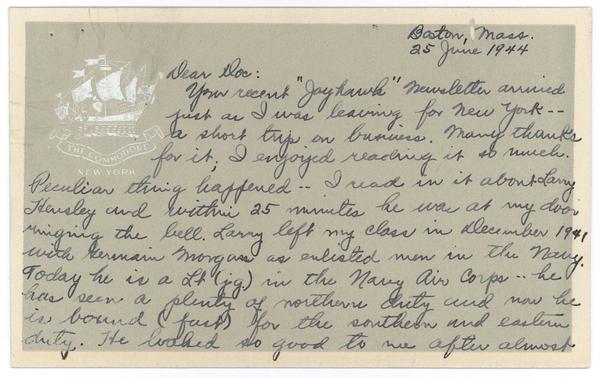 Boston, Mass.
25 June 1944
Dear Doc:
Your recent "Jayhawk" Newsletter arrived
just as I was leaving for New York--
a short trip on business. Many thanks
for it; I enjoyed reading it so much.
THE COMMODORE
NEW YORK
Peculiar thing happened -- I read in it about Larry
Hensley and within 25 minutes he was at my door
ringing the bell. Larry left my class in December 1941
with Germain Morgan as enlisted men in the Navy.
Today he is a Lt (jg.) in the Navy Air Corps -- he
has seen a plenty of northern duty and now he
is bound (fast) for the southern and eastern
duty. He looked so good to me after almost